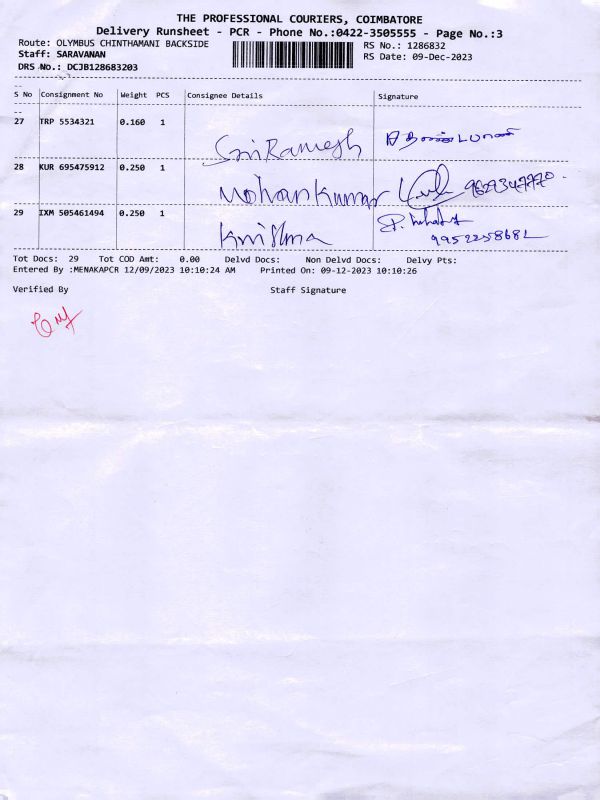 THE PROFESSIONAL COURIERS, COIMBATORE
Delivery Runsheet - PCR - Phone No.:0422-3505555 - Page No.:3
Route: OLYMBUS CHINTHAMANI BACKSIDE
RS No.: 1286832
Staff: SARAVANAN
RS Date: 09-Dec-2023
DRS No.: DCJB128683203
S No Consignment No Weight PCS Consignee Details Signature
27 TRP 5534321 0.160 1 SriRamesh
28 KUR 695475912 0.250 1 Mohankumar
29 IXM 505461494 0.250 1 Krishna
9952258682
Tot Docs: 29 Tot COD Amt: 0.00 Delvd Docs: Non Delvd Docs: Delvy Pts:
Entered By :MENAKAPCR 12/09/2023 10:10:24 AM Printed On: 09-12-2023 10:10:26
Verified By Staff Signature